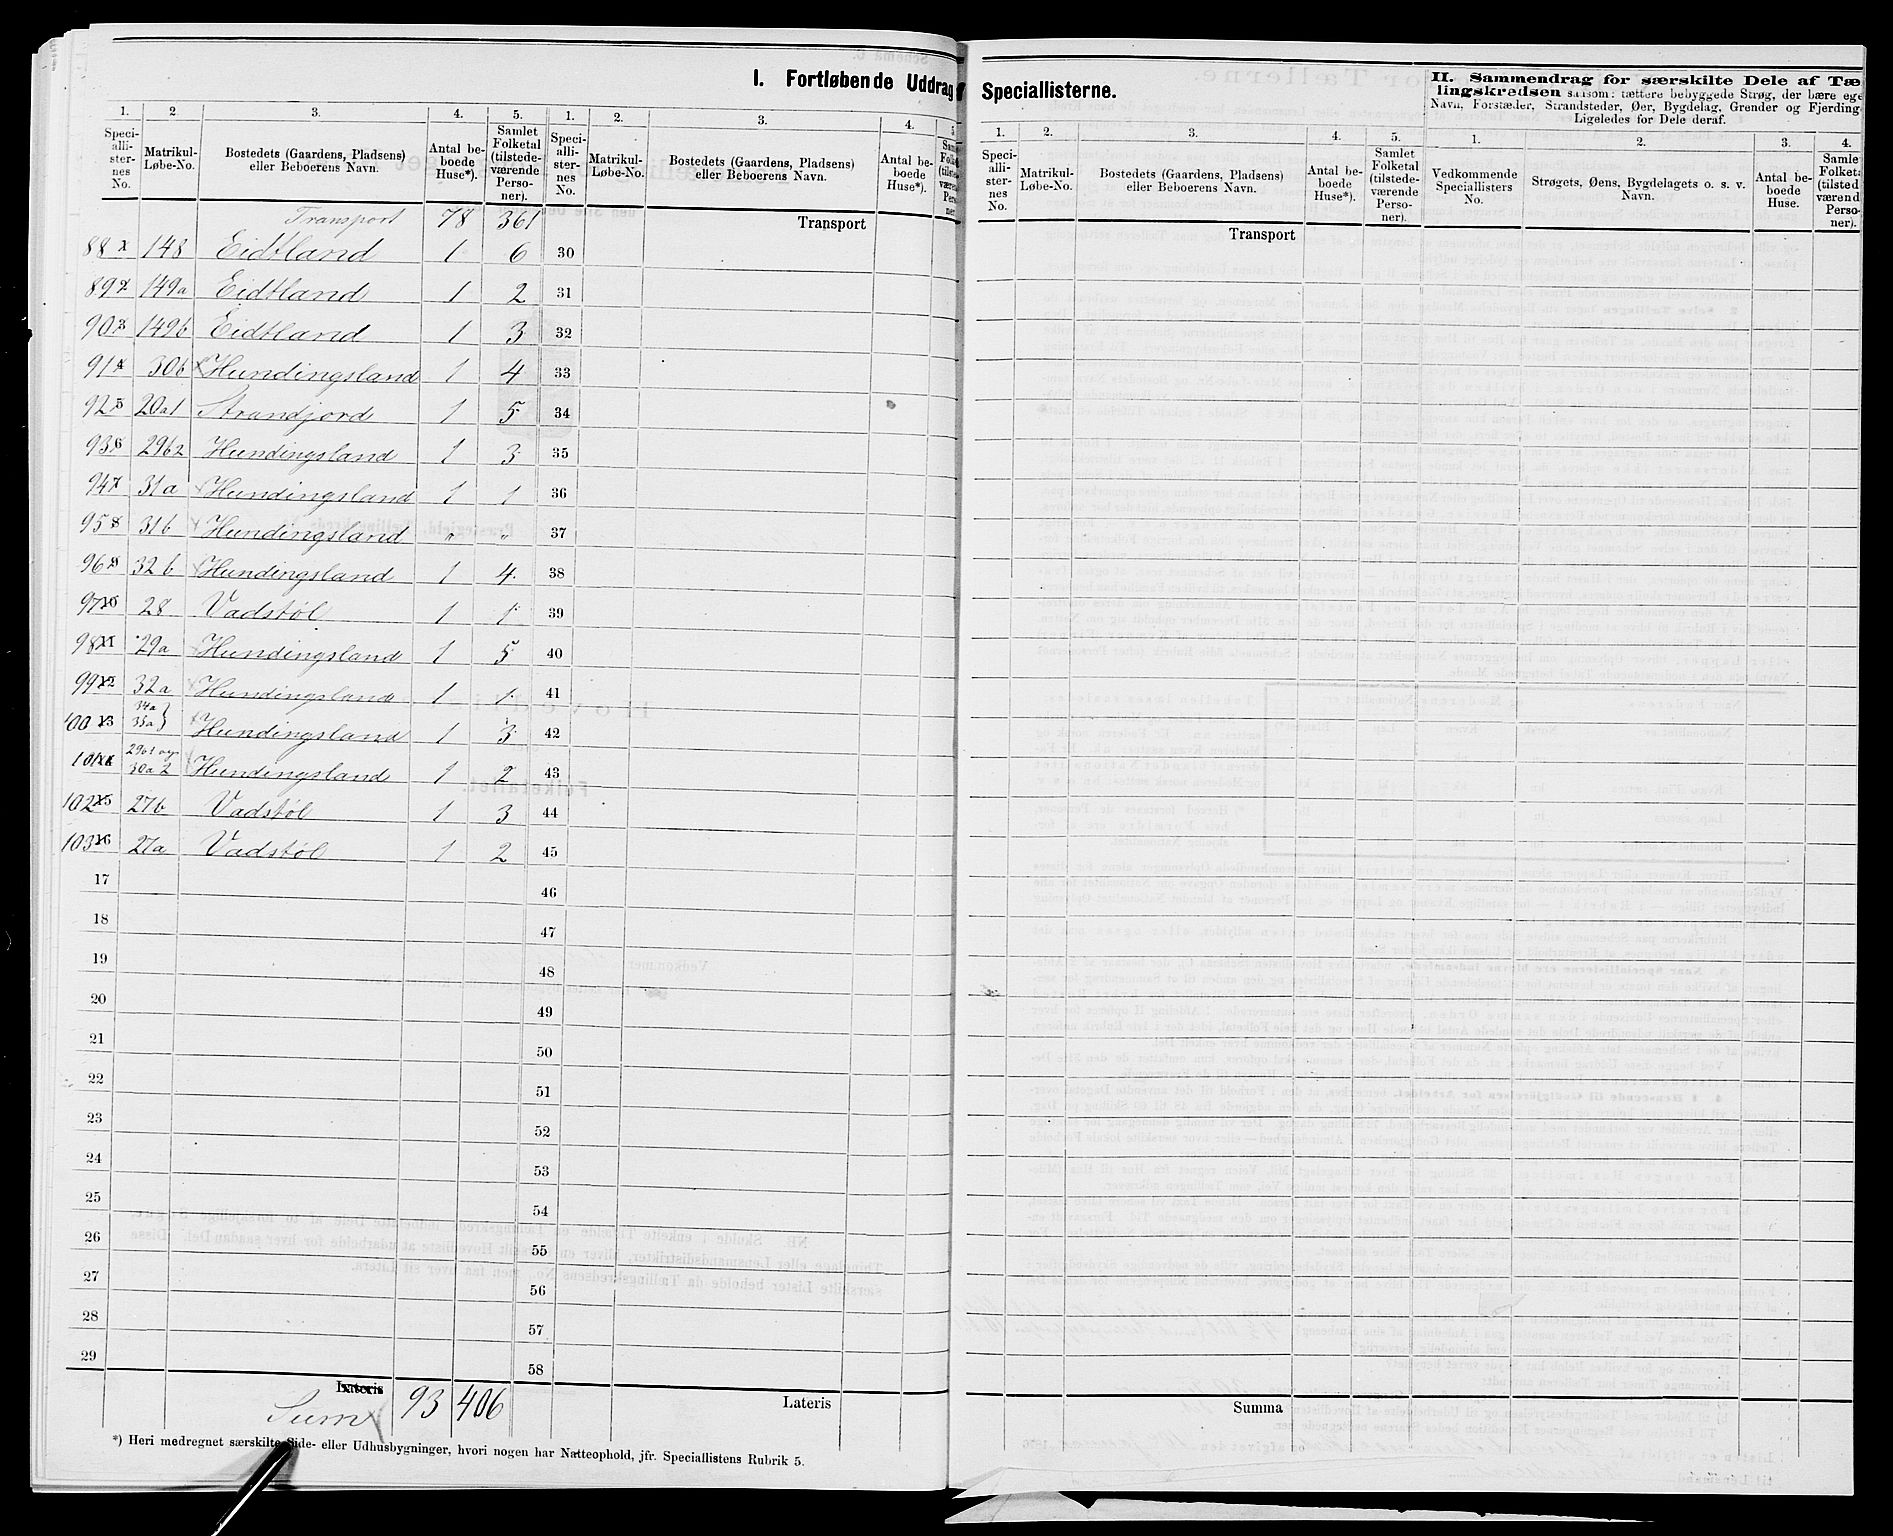 I. Fortløbende Uddrag
1. 2. 3. 4. 5. 1. 2. 3. 4. 5
Speciallisternes No. Matrikul-Løbe-No. Bostedets (Gaardens, Pladsens) eller Beboerens Navn. Antal beboede Huse*). Samlet Folketal (tilstedeværende Personer). Speciallisternes No. Matrikul-Løbe-No. Bostedets (Gaardens, Pladsens) eller Beboerens Navn. Antal beboede Huse*).
Transport 78 361 Transport
88 1 148 Eidtland 1 6 30
89 2 149a Eidtland 1 2 31
90 3 149b Eidtland 1 3 32
91 4 30b Hundingsland 1 4 33
92 5 20a1 Strandjord 1 5 34
93 6 29b2 Hundingsland 1 3 35
94 7 31a Hundingsland 1 1 36
95 8 31b Hundingsland " " 37
96 9 32b Hundingsland 1 4 38
97 10 28 Vadstøl 1 1 39
98 11 29a Hundingsland 1 5 40
99 12 32a Hundingsland 1 1 41
100 13 34a 35a} Hundingsland 1 3 42
101 14 29b1 og 30a2 Hundingsland 1 2 43
102 15 27b Vadstøl 1 3 44
103 16 27a Vadstøl 1 2 45
17 46
18 47
19 48
20 49
21 50
22 51
23 52
24 53
25 54
26 55
27 56
28 57
29 58
Lateris Lateris
Sum 93 406
*) Heri medregnet særskilte Side- eller Udhusbygninger, hvori nogen har Natteophold, jfr. Speciallistens Rubrik 5.
Speciallisterne.
1. 2. 3. 4. 5.
Speciallisternes No. Matrikul-Løbe-No. Bostedets (Gaardens, Pladsens) eller Beboerens Navn. Antal beboede Huse*). Samlet Folketal (tilstedeværende Personer).
Transport
Summa
II. Sammendrag for særskilte Dele af Tæ
lingskredsen saasom: tættere bebyggede Strøg, der bære ege
Navn, Forstæder, Strandsteder, Øer, Bygdelag, Grender og Fjerding
Ligeledes for Dele deraf.
1. 2. 3. 4.
Vedkommende Speciallisters No. Strøgets, Øens, Bygdelagets o. s. v. Navn. Antal beboede Huse. Samle Folket (tilsted værend Personer).